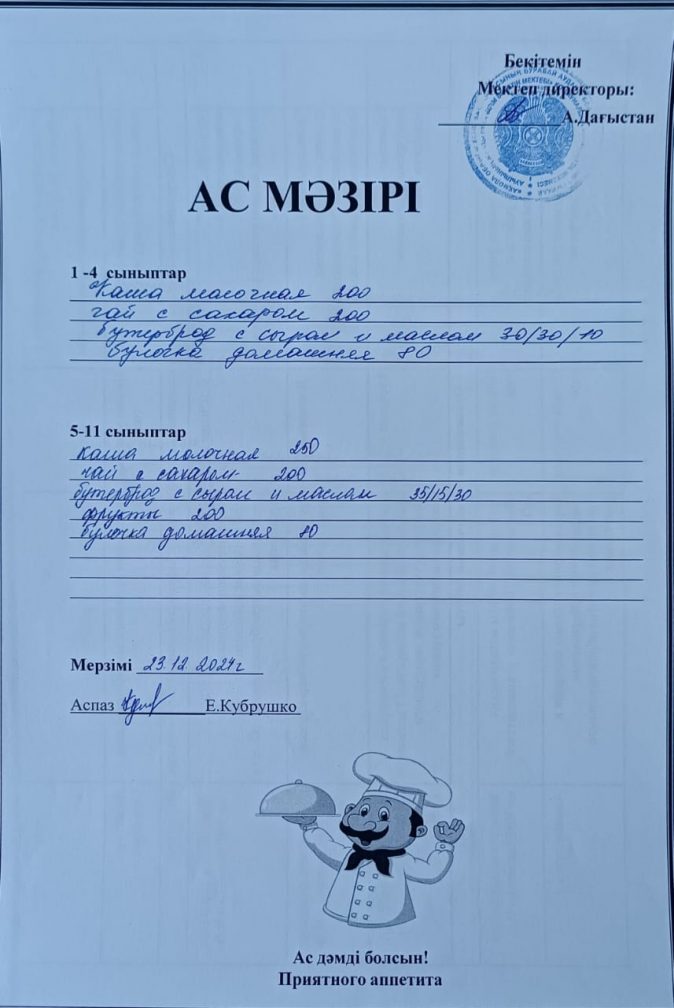 Бекітемін
Мектеп директоры:
А.Дағыстан
АС МӘЗІРІ
1 -4 сыныптар
Каша молочная 200
чай с сахаром 200
бутерброд с сыром и маслом 30/30/10
булочка домашняя 80
5-11 сыныптар
каша молочная 250
чай с сахаром 200
бутерброд с сыром и маслом 35/15/30
фрукты 200
булочка домашняя 80
Мерзімі 23.12.2024г
Аспаз Е.Кубрушко
Ас дәмді болсын!
Приятного аппетита